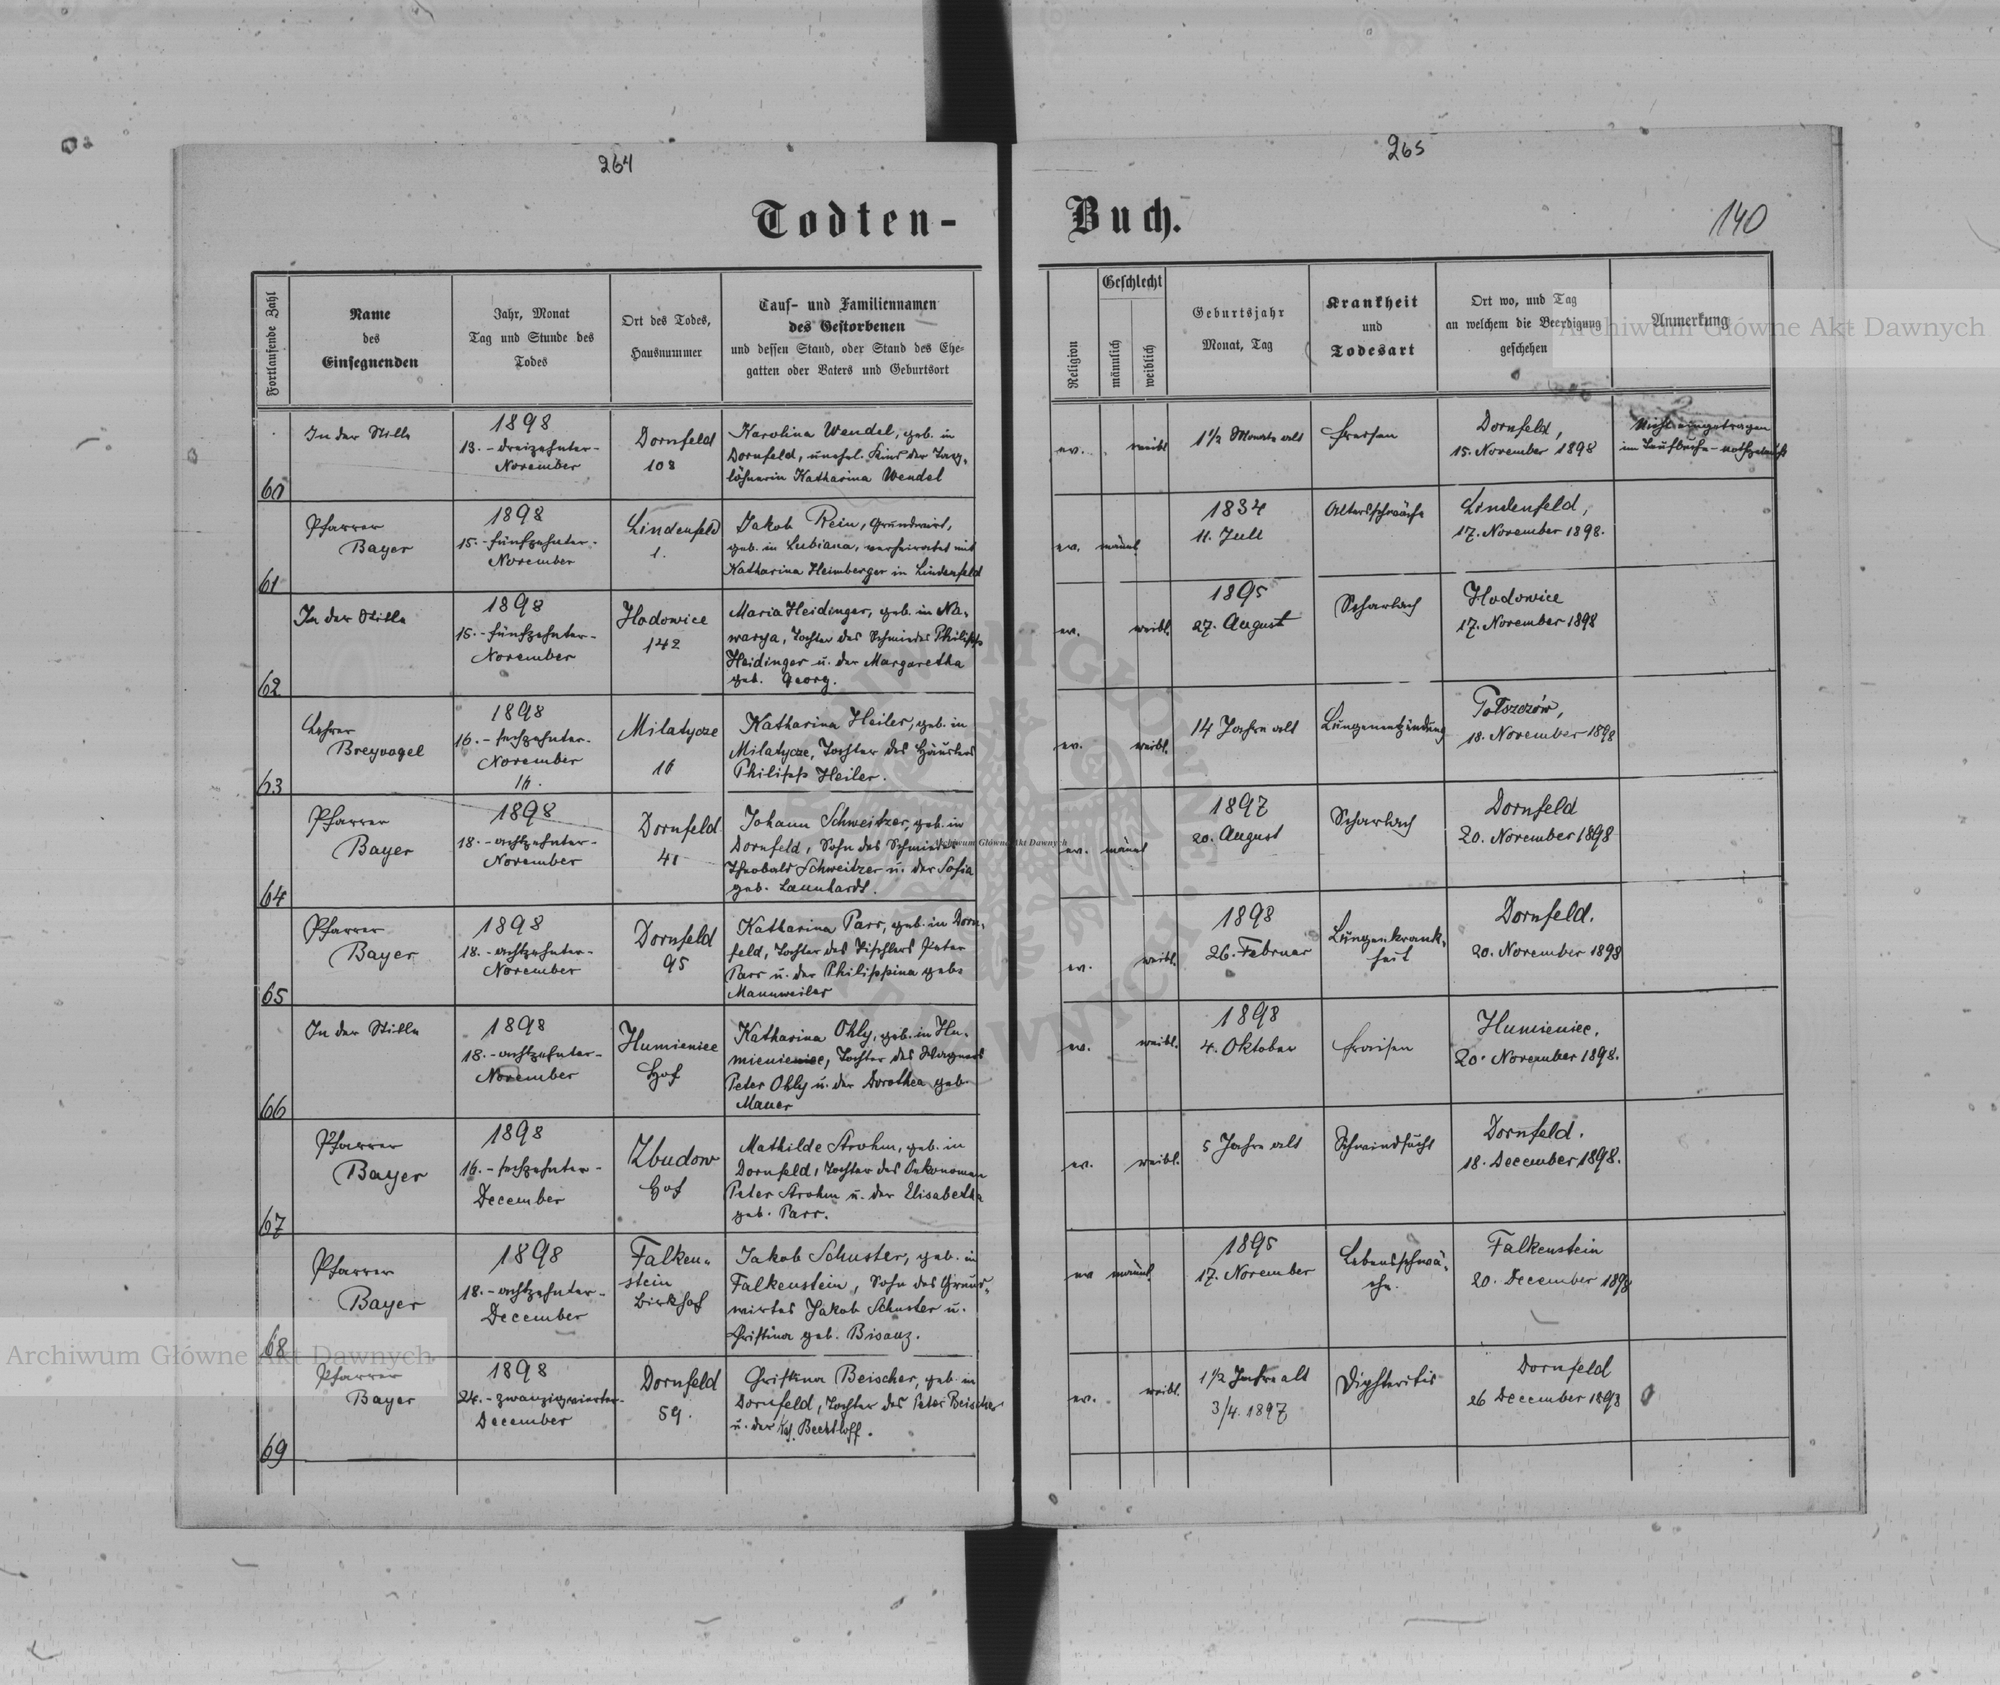 264
Todten-
Fortlaufende Zahl
Name
des
Einsegnenden
Jahr, Monat
Tag und Stunde des
Todes
Ort des Todes,
Hausnummer
Tauf- und Familiennamen
des Gestorbenen
und dessen Stand, oder Stand des Ehe-
gatten oder Vaters und Geburtsort
60
In der Stille
1898
13.-dreizehnter-
November
Dornfeld
108
Karolina Wendel, geb. in
Dornfeld, unehel. Kind der Tag-
löhnerin Katharina Wendel
61
Pfarrer
Bayer
1898
15.-fünfzehnter-
November
Lindenfeld
1.
Jakob Rein, Grundwirt,
geb. in Lubiana, verheiratet mit
Katharina Heimberger in Lindenfeld
62
In der Stille
1898
15.-fünfzehnter-
November
Hodowice
142
Maria Heidinger, geb. in Na-
warya, Tochter des Schmiedes Philipp
Heidinger u. der Margaretha
geb. Georg.
63
Lehrer
Breyvogel
1898
16.-sechzehnter-
November
16.
Milatycze
16
Katharina Heiler, geb. in
Milatycze, Tochter des Häuslers
Philipp Heiler.
64
Pfarrer
Bayer
1898
18.-achtzehnter-
November
Dornfeld
41
Johann Schweitzer, geb. in
Dornfeld, Sohn des Schmiedes
Theobald Schweitzer u. der Sofia
geb. Launhardt.
65
Pfarrer
Bayer
1898
18.-achtzehnter-
November
Dornfeld
95
Katharina Parr, geb. in Dorn-
feld, Tochter des Tischlers Peter
Parr u. der Philippina geb.
Mannweiler
66
In der Stille
1898
18.-achtzehnter-
November
Humieniec
Hof
Katharina Ohly, geb. in Hu-
mieniec, Tochter des Wagners
Peter Ohly u. der Dorothea geb.
Mauer
67
Pfarrer
Bayer
1898
16.-sechzehnter-
December
Zbudow
Hof
Mathilde Strohm, geb. in
Dornfeld, Tochter des Oekonomen
Peter Strohm u. der Elisabetha
geb. Parr.
68
Pfarrer
Bayer
1898
18.-achtzehnter-
December
Falken-
stein
Birkhof
Jakob Schuster, geb. in
Falkenstein, Sohn des Grund-
wirtes Jakob Schuster u.
Christina geb. Bisanz.
69
Pfarrer
Bayer
1898
24.-zwanzigvierter-
December
Dornfeld
59.
Christina Beischer, geb. in
Dornfeld, Tochter des Peter Beischer
u. der Kath. Bechtloff.
265
Buch.
140
Religion
Geschlecht
männlich
weiblich
Geburtsjahr
Monat, Tag
Krankheit
und
Todesart
Ort wo, und Tag
an welchem die Beerdigung
geschehen
Anmerkung
ev.
weibl
1 1/2 Monate alt
Fraisen
Dornfeld,
15. November 1898
Nicht eingetragen
im Taufbuche - nothgetauft
ev.
männl
1834
11. Juli
Altersschwäche
Lindenfeld,
17. November 1898.
ev.
weibl.
1895
27. August
Scharlach
Hodowice
17. November 1898
ev.
weibl.
14 Jahre alt
Lungenentzündung
Tołszczów,
18. November 1898
ev.
männl
1897
20. August
Scharlach
Dornfeld
20. November 1898
ev.
weibl.
1898
26. Februar
Lungenkrank-
heit
Dornfeld.
20. November 1898
ev.
weibl.
1898
4. Oktober
Fraisen
Humieniec.
20. November 1898.
ev.
weibl.
5 Jahre alt
Schwindsucht
Dornfeld.
18. December 1898.
ev
männl.
1895
17. November
Lebensschwä-
che.
Falkenstein
20. December 1898
ev.
weibl.
1 1/2 Jahre alt
3/4. 1897
Diphteritis
Dornfeld
26 December 1898
Archiwum Główne Akt Dawnych
Archiwum Główne Akt Dawnych
Archiwum Główne Akt Dawnych